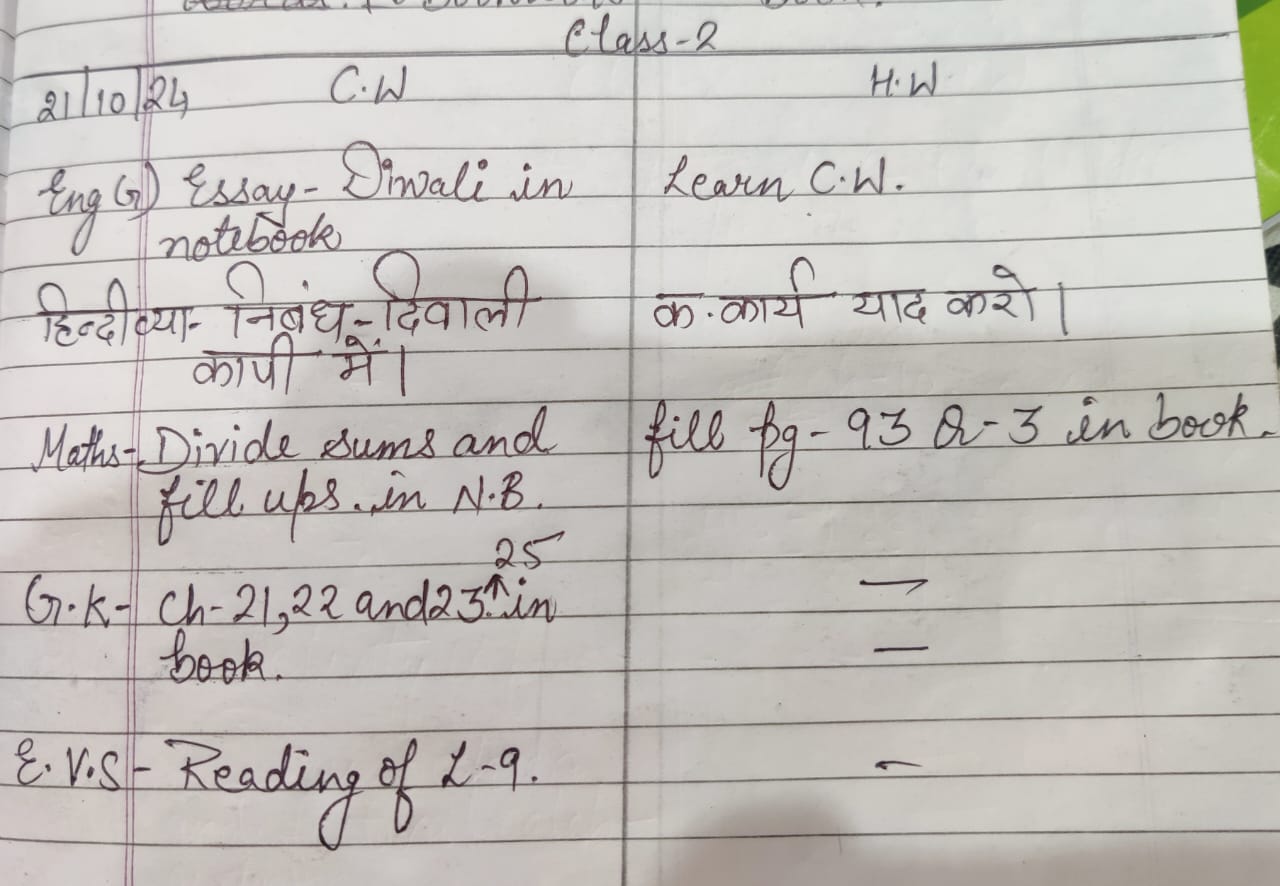 Class-2
21/10/24 C.W H.W
Eng(G) Essay- Diwali in Learn C.W.
notebook
हिन्दी व्या- निबंध-दिवाली क.कार्य याद करो।
कापी में।
Maths- Divide sums and fill pg-93 Q-3 in book.
fill ups. in N.B.
25
G.K- Ch-21,22 and 23 ↑ in —
book. —
E.V.S- Reading of L-9. -